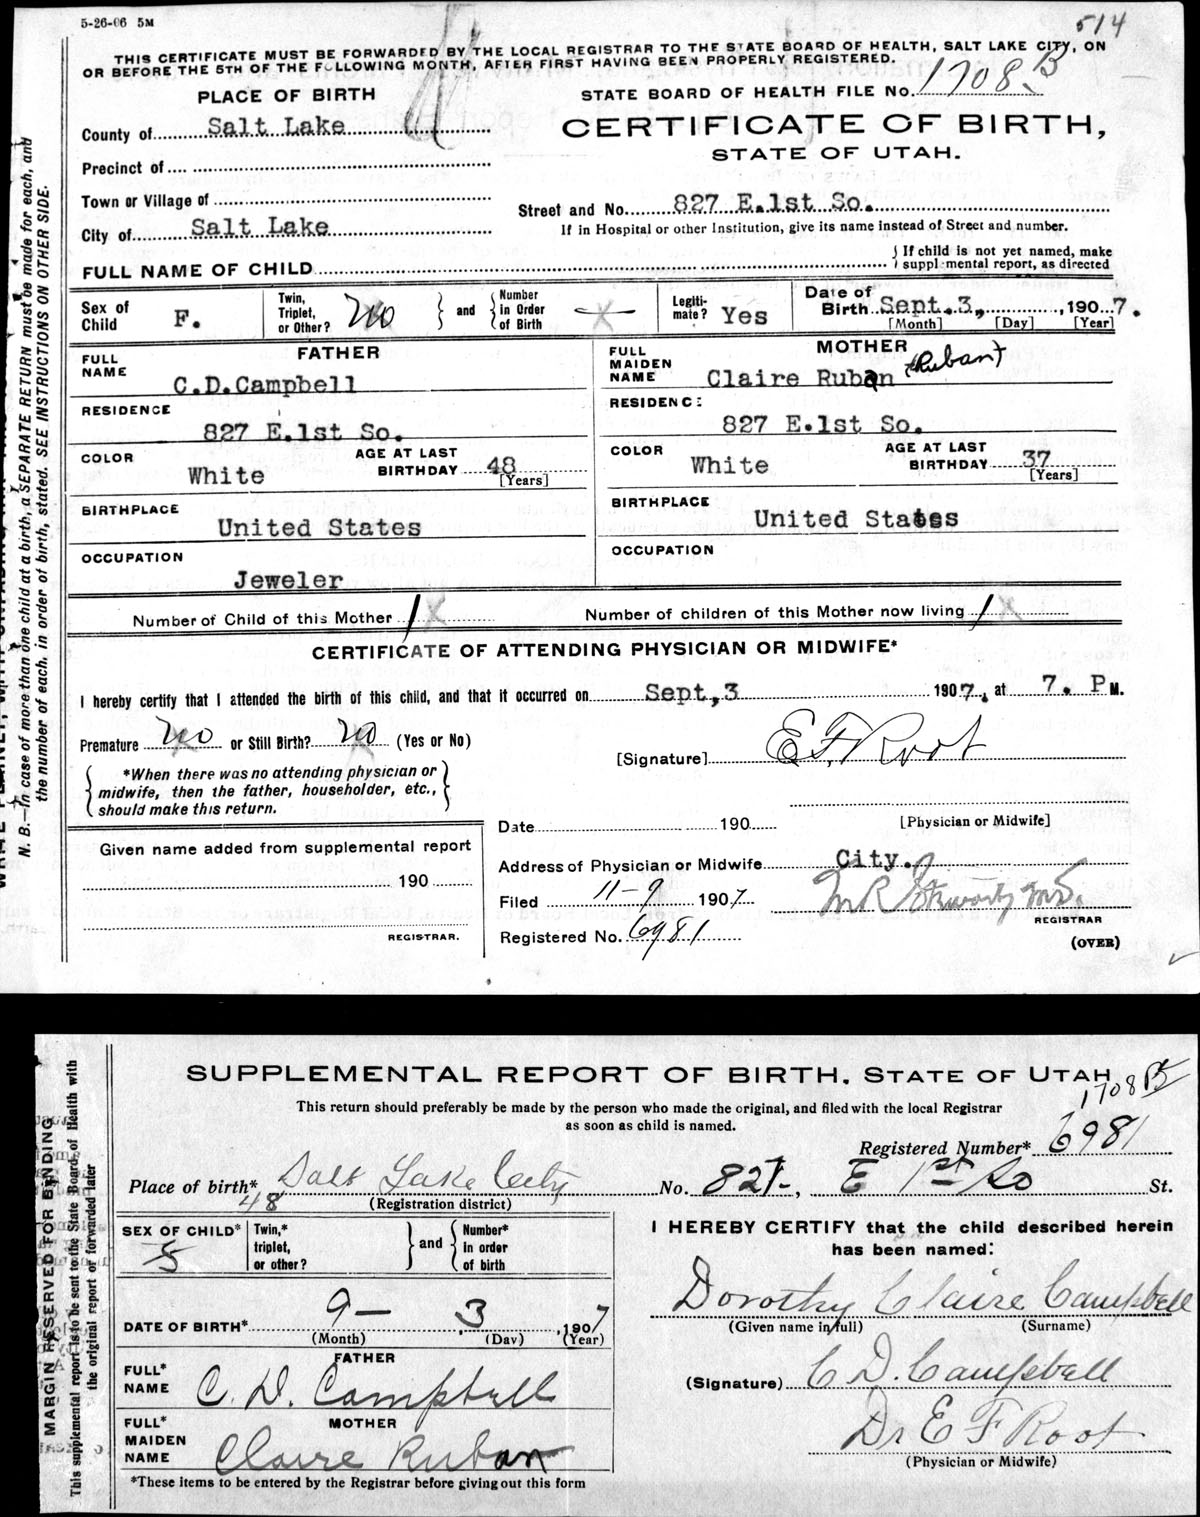 5-26-06 5M
514
THIS CERTIFICATE MUST BE FORWARDED BY THE LOCAL REGISTRAR TO THE STATE BOARD OF HEALTH, SALT LAKE CITY, ON
OR BEFORE THE 5TH OF THE FOLLOWING MONTH, AFTER FIRST HAVING BEEN PROPERLY REGISTERED.
PLACE OF BIRTH
STATE BOARD OF HEALTH FILE No. 1708 B
County of Salt Lake
CERTIFICATE OF BIRTH,
STATE OF UTAH.
Precinct of
Town or Village of
Street and No. 827 E.1st So.
City of Salt Lake
If in Hospital or other Institution, give its name instead of Street and number.
FULL NAME OF CHILD
{ If child is not yet named, make
suppl mental report, as directed
Sex of Child F.
Twin, Triplet, or Other? No } and { Number in Order of Birth
Legiti-mate? Yes
Date of Birth Sept.3, 1907.
[Month] [Day] [Year]
FATHER
FULL NAME C.D.Campbell
RESIDENCE 827 E.1st So.
COLOR White
AGE AT LAST BIRTHDAY 48 [Years]
BIRTHPLACE United States
OCCUPATION Jeweler
MOTHER
FULL MAIDEN NAME Claire Ruban (Ruban)
RESIDENCE 827 E.1st So.
COLOR White
AGE AT LAST BIRTHDAY 37 [Years]
BIRTHPLACE United States
OCCUPATION
Number of Child of this Mother 1
Number of children of this Mother now living 1
CERTIFICATE OF ATTENDING PHYSICIAN OR MIDWIFE*
I hereby certify that I attended the birth of this child, and that it occurred on Sept,3 1907, at 7. P M.
Premature No or Still Birth? No (Yes or No)
[Signature] E.F. Root
{ *When there was no attending physician or
midwife, then the father, householder, etc.,
should make this return. }
Date 190
[Physician or Midwife]
Given name added from supplemental report
190
REGISTRAR.
Address of Physician or Midwife City.
Filed 11-9 1907
REGISTRAR
Registered No. 6981
(OVER)
N. B.—In case of more than one child at a birth, a SEPARATE RETURN must be made for each, and
the number of each, in order of birth, stated. SEE INSTRUCTIONS ON OTHER SIDE.
SUPPLEMENTAL REPORT OF BIRTH. STATE OF UTAH
1708 B
This return should preferably be made by the person who made the original, and filed with the local Registrar
as soon as child is named.
Registered Number* 6981
Place of birth* Salt Lake City No. 827-, E 1st So St.
48
(Registration district)
SEX OF CHILD*
Twin,* triplet, or other? } and { Number* in order of birth
I HEREBY CERTIFY that the child described herein
has been named:
Dorothy Claire Campbell
(Given name in full) (Surname)
DATE OF BIRTH* 9- 3, 1907
(Month) (Day) (Year)
FATHER
FULL* NAME C. D. Campbell
(Signature) C D. Campbell
MOTHER
FULL* MAIDEN NAME Claire Ruban
Dr E F Root
(Physician or Midwife)
*These items to be entered by the Registrar before giving out this form
MARGIN RESERVED FOR BINDING
This supplemental report is to be sent to the State Board of Health with
the original report or forwarded later